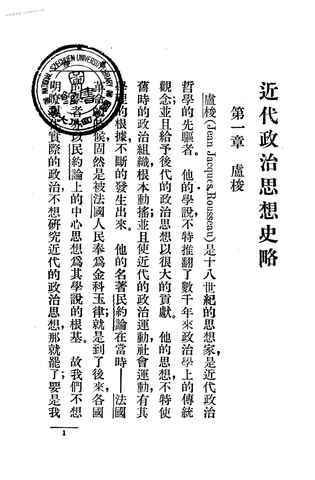 近代政治思想史略
第一章 盧梭
盧梭(Jean Jacques Rousseau)是十八世紀的思想家,是近代政治
哲學的先驅者。他的學說不特推翻了數千年來政治學上的傳統
觀念;並且給予後代的政治思想以很大的貢獻。他的思想不特使
舊時的政治組織根本動搖;並且使近代的政治運動社會運動有其
學理的根據不斷的發生出來。他的名著民約論在當時——法國
革命時候,固然是被法國人民奉爲金科玉律;就是到了後來,各國
民約論上的中心思想爲其學說的根基。故我們不想
實際的政治,不想研究近代的政治思想,那就罷了;要是我
1